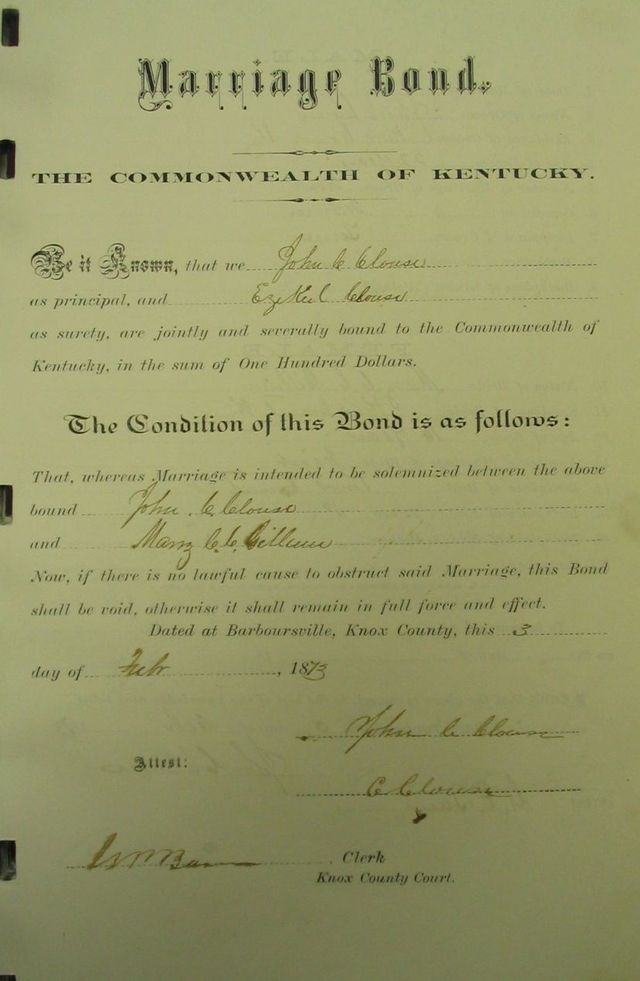 Marriage Bond.
THE COMMONWEALTH OF KENTUCKY.
Be it Known, that we John C Clouse
as principal, and Ezekiel Clouse
as surety, are jointly and severally bound to the Commonwealth of
Kentucky, in the sum of One Hundred Dollars.
The Condition of this Bond is as follows:
That, whereas Marriage is intended to be solemnized between the above
bound John C Clouse
and Mary C. C.
Now, if there is no lawful cause to obstruct said Marriage, this Bond
shall be void, otherwise it shall remain in full force and effect.
Dated at Barboursville, Knox County, this 3
day of Feb, 1873
John C Clouse
Attest:
E Clouse
Clerk
Knox County Court.